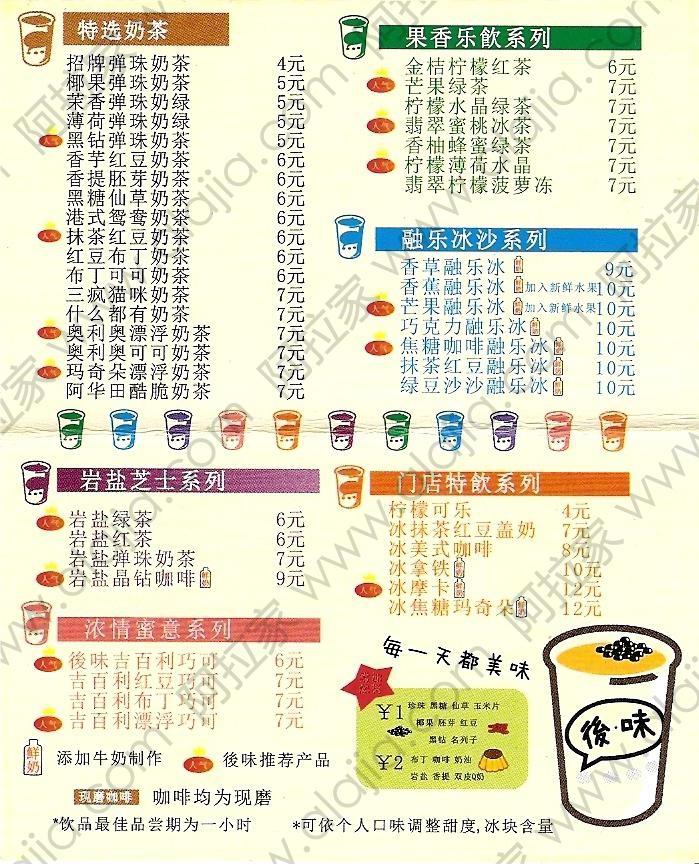 特选奶茶
招牌弹珠奶茶 4元
椰果弹珠奶茶 5元
茉香弹珠奶绿 5元
薄荷弹珠奶绿 5元
人气 黑钻弹珠奶茶 5元
香芋红豆奶茶 6元
香提胚芽奶茶 6元
黑糖仙草奶茶 6元
港式鸳鸯奶茶 6元
人气 抹茶红豆奶茶 6元
红豆布丁奶茶 6元
布丁可可奶茶 6元
三疯猫咪奶茶 7元
什么都有奶茶 7元
人气 奥利奥漂浮奶茶 7元
奥利奥可可奶茶 7元
人气 玛奇朵漂浮奶茶 7元
阿华田酷脆奶茶 7元
果香乐飲系列
金桔柠檬红茶 6元
人气 芒果绿茶 7元
柠檬水晶绿茶 7元
人气 翡翠蜜桃冰茶 7元
香柚蜂蜜绿茶 7元
人气 柠檬薄荷水晶 7元
翡翠柠檬菠萝冻 7元
融乐冰沙系列
香草融乐冰 鲜奶 9元
香蕉融乐冰 鲜奶 加入新鲜水果 10元
人气 芒果融乐冰 鲜奶 加入新鲜水果 10元
巧克力融乐冰 鲜奶 10元
人气 焦糖咖啡融乐冰 鲜奶 10元
抹茶红豆融乐冰 鲜奶 10元
绿豆沙沙融乐冰 鲜奶 10元
岩盐芝士系列
人气 岩盐绿茶 6元
岩盐红茶 6元
岩盐弹珠奶茶 7元
人气 岩盐晶钻咖啡 鲜奶 9元
门店特飲系列
柠檬可乐 4元
冰抹茶红豆盖奶 7元
冰美式咖啡 8元
冰拿铁 鲜奶 10元
人气 冰摩卡 鲜奶 12元
冰焦糖玛奇朵 鲜奶 12元
浓情蜜意系列
人气 後味吉百利巧可 6元
吉百利红豆巧可 7元
吉百利布丁巧可 7元
人气 吉百利漂浮巧可 7元
鲜奶 添加牛奶制作 人气 後味推荐产品
现磨咖啡 咖啡均为现磨
*饮品最佳品尝期为一小时 *可依个人口味调整甜度,冰块含量
每一天都美味
¥1 珍珠 黑糖 仙草 玉米片
椰果 胚芽 红豆
黑钻 名列子
¥2 布丁 咖啡 奶油
岩盐 香提 双皮Q奶
後·味
阿拉家 www.alajia.com